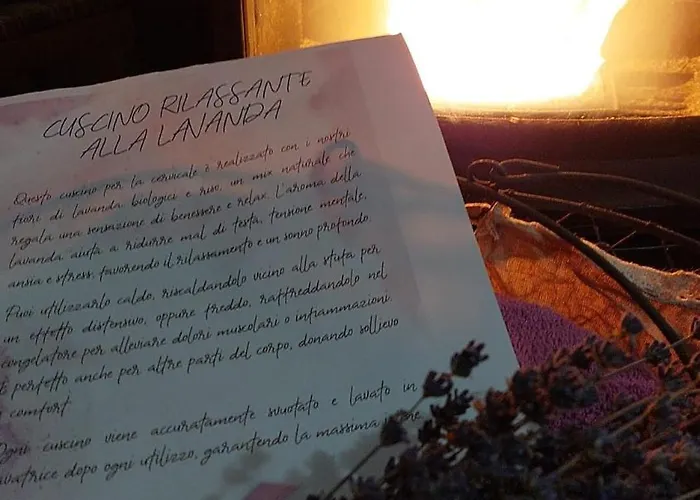 CUSCINO RILASSANTE
ALLA LAVANDA
Questo cuscino per la cervicale è realizzato con i nostri
fiori di lavanda biologici e riso, un mix naturale che
regala una sensazione di benessere e relax. L'aroma della
lavanda aiuta a ridurre mal di testa, tensione mentale,
ansia e stress, favorendo il rilassamento e un sonno profondo.
Puoi utilizzarlo caldo, riscaldandolo vicino alla stufa per
un effetto distensivo, oppure freddo, raffreddandolo nel
congelatore per alleviare dolori muscolari o infiammazioni.
È perfetto anche per altre parti del corpo, donando sollievo
e comfort.
Ogni cuscino viene accuratamente svuotato e lavato in
lavatrice dopo ogni utilizzo, garantendo la massima